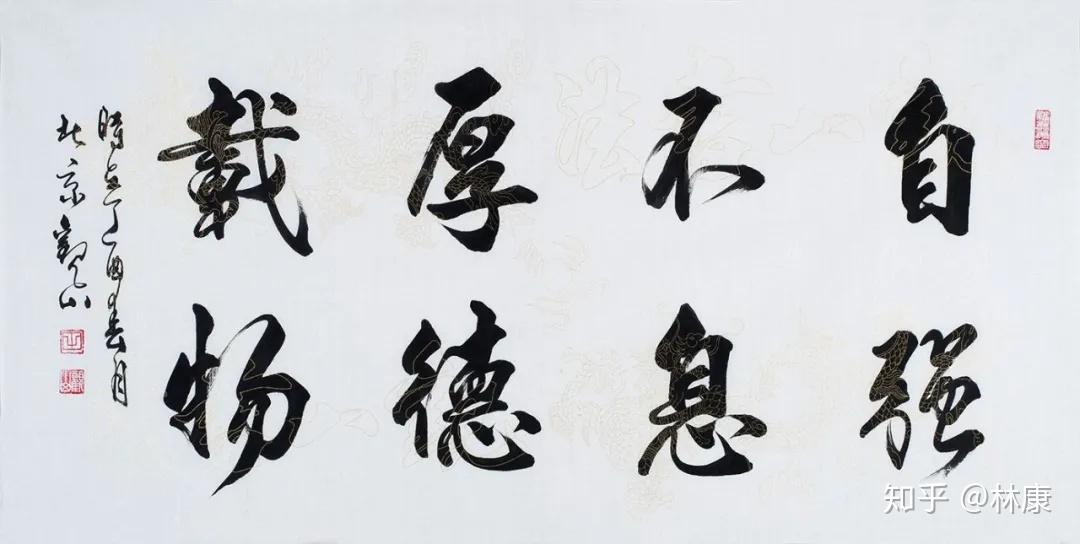 自强
不息
厚德
载物
時在丁酉春月
北京観山
知乎 @林康